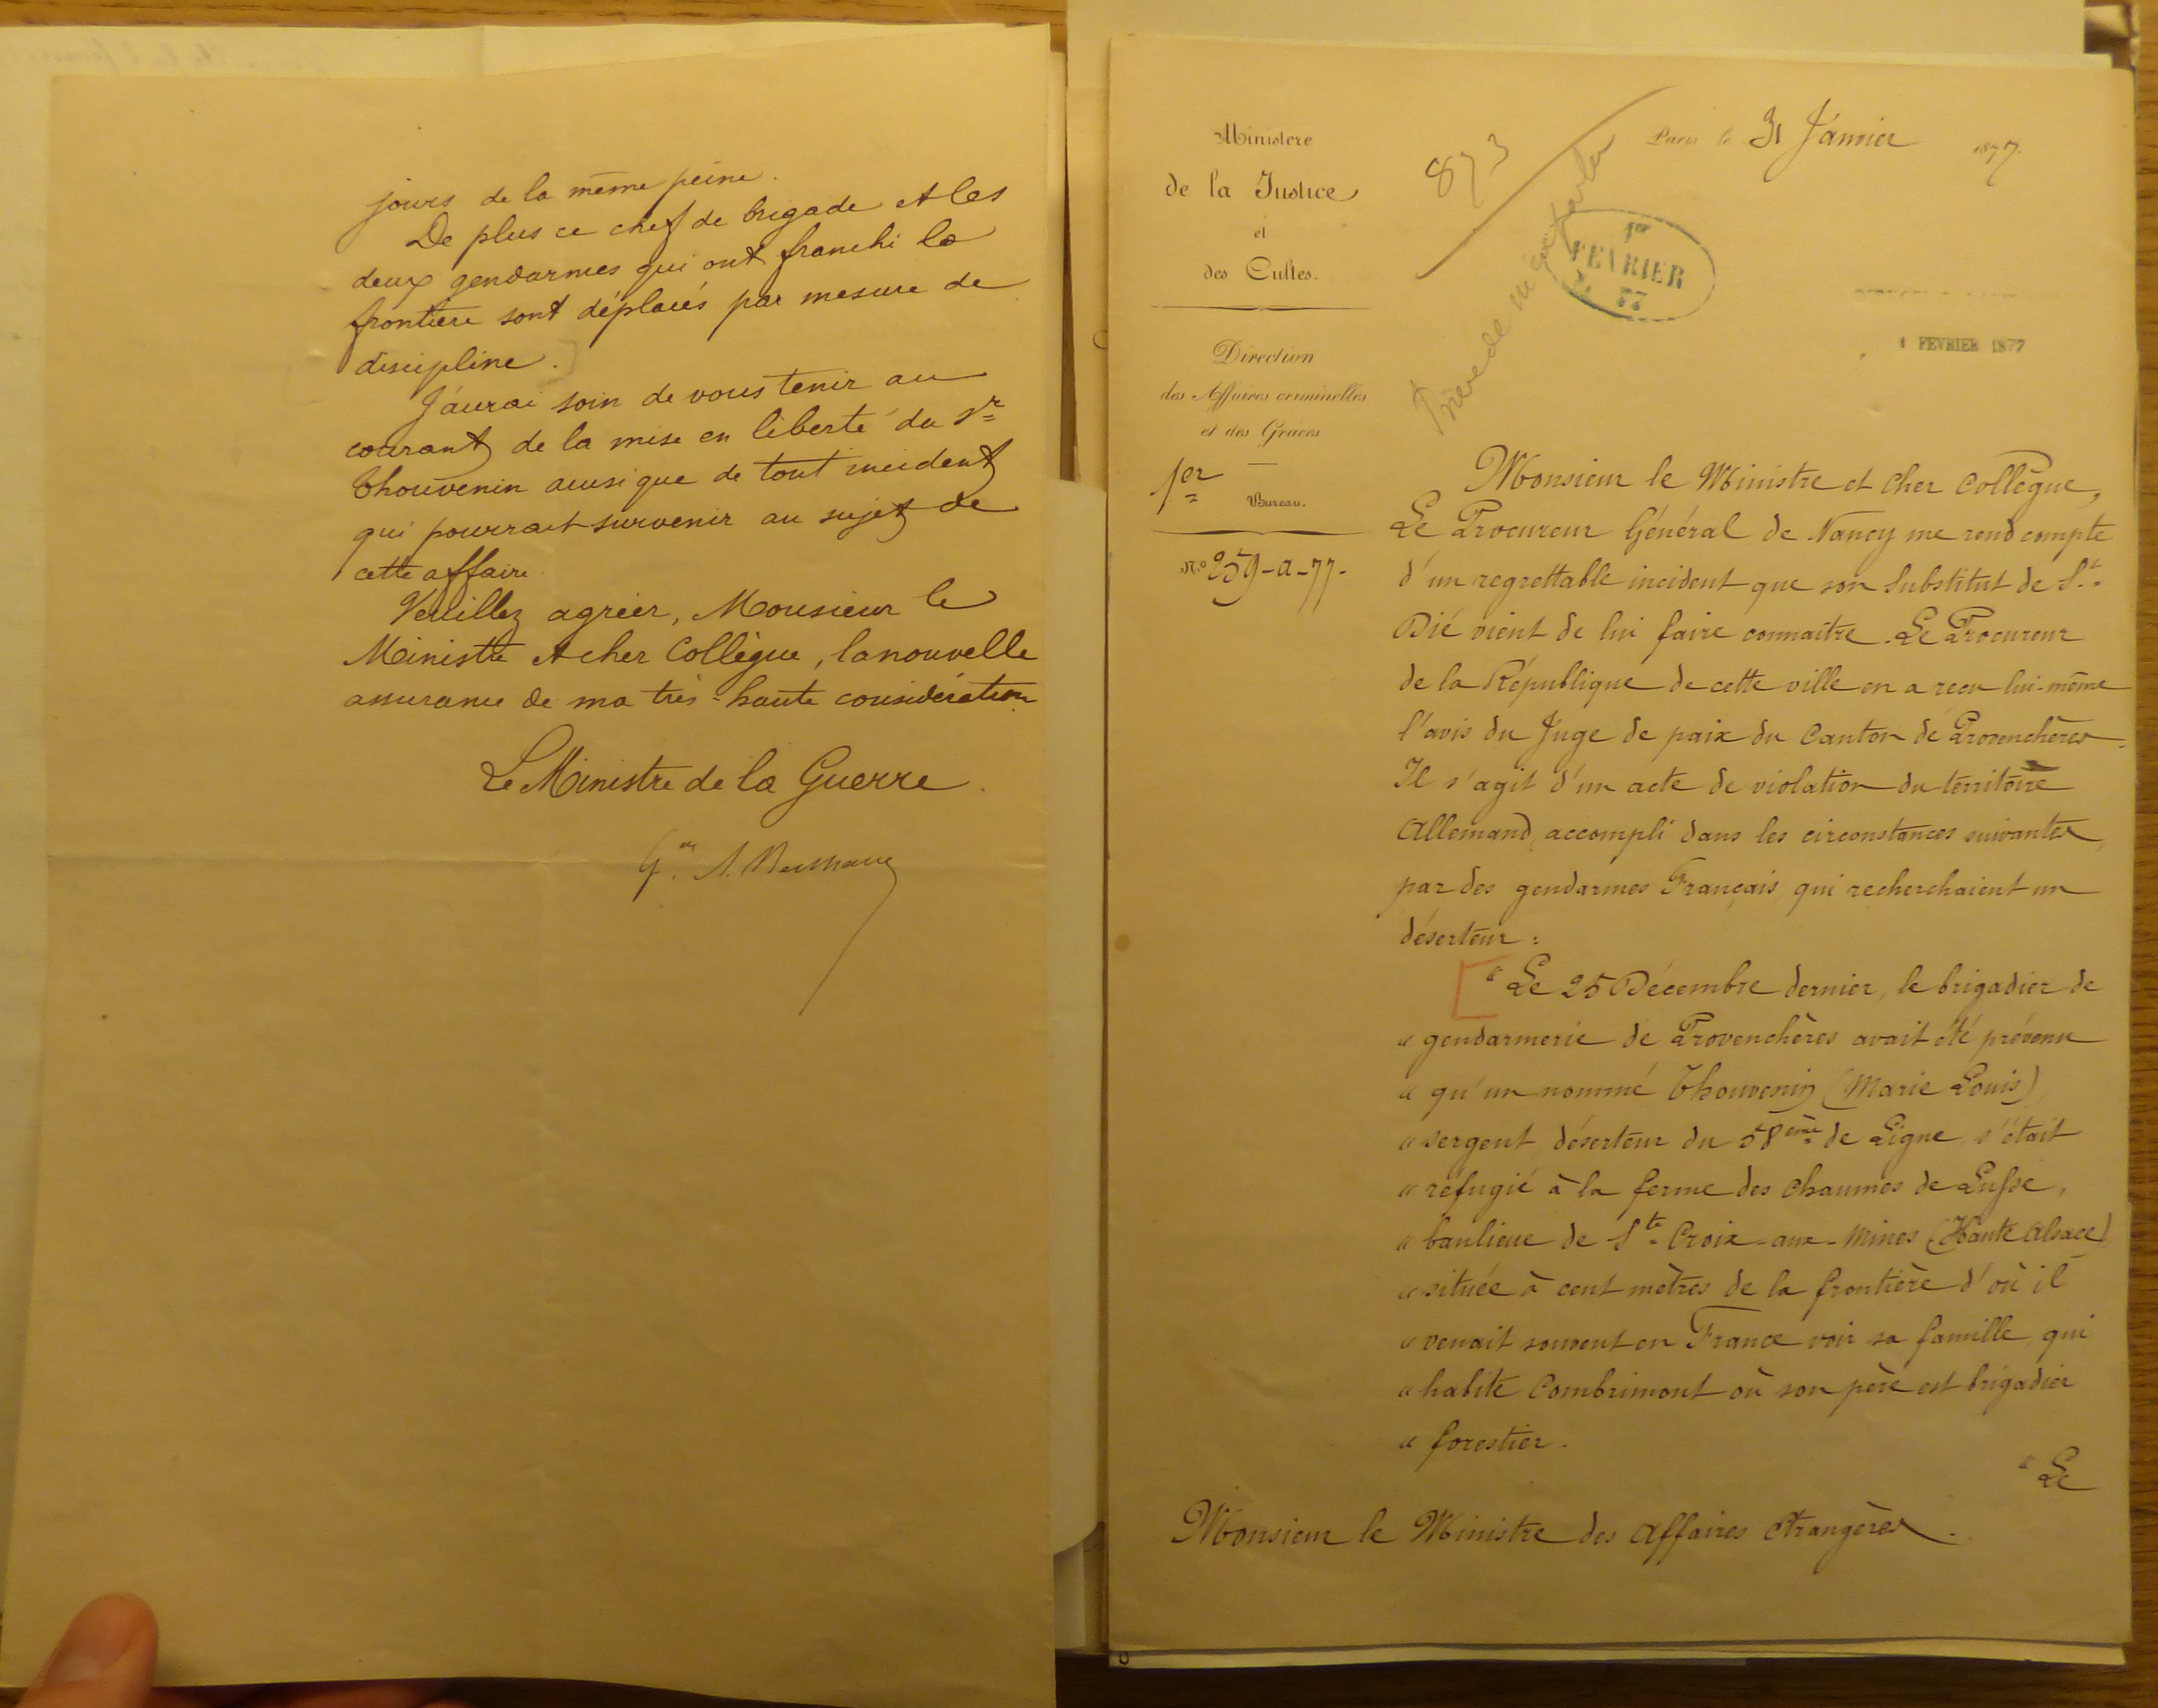 jours de la même peine.
De plus ce chef de brigade et les
deux gendarmes qui ont franchi la
frontière sont déplacés par mesure de
discipline.
J'aurai soin de vous tenir au
courant de la mise en liberté du Sr
Thouvenin ainsi que de tout incident
qui pourrait survenir au sujet de
cette affaire.
Veuillez agréer, Monsieur le
Ministre et cher Collègue, la nouvelle
assurance de ma très-haute considération.
Le Ministre de la Guerre.
Gal A. Berthaut
Ministère
de la Justice
et
des Cultes.
Direction
des Affaires criminelles
et des Grâces
1er
Bureau.
N.o 259-a-77.
873
Paris le 31 Janvier 1877.
1er
FEVRIER
77
1 FEVRIER 1877
Monsieur le Ministre et cher Collègue,
Le Procureur Général de Nancy me rend compte
d'un regrettable incident que son Substitut de St
Dié vient de lui faire connaître. Le Procureur
de la République de cette ville en a reçu lui-même
l'avis du Juge de paix du Canton de Provenchères.
Il s'agit d'un acte de violation du territoire
Allemand, accompli dans les circonstances suivantes,
par des gendarmes Français qui recherchaient un
déserteur :
" Le 25 Décembre dernier, le brigadier de
" gendarmerie de Provenchères avait été prévenu
" qu'un nommé Thouvenin (Marie Louis)
" sergent déserteur du 58ème de Ligne s'était
" réfugié à la ferme des Chaumes de Lusse,
" banlieue de Ste Croix-aux-Mines (Haute Alsace)
" située à cent mètres de la frontière d'où il
" venait souvent en France voir sa famille qui
" habite Combrimont où son père est brigadier
" forestier.
" Le
Monsieur le Ministre des Affaires étrangères.